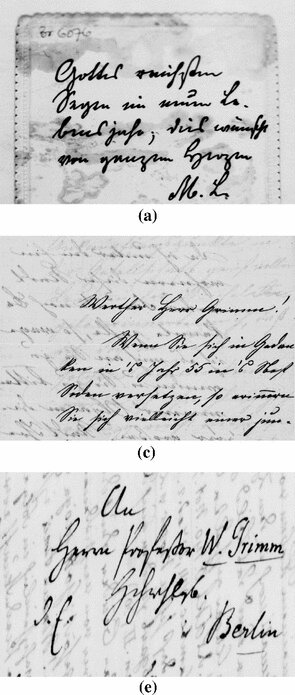 Br 6076
Gottes reichsten
Segen im neuen Le-
bensjahr; dies wünscht
von ganzem Herzen
M. L.
(a)
Werther Herr Grimm!
Wenn Sie sich in Gedan
ken in's Jahr 55 in's
Soden versetzen, so erinnern
Sie sich vielleicht einer jun-
(c)
An
Herrn Professor W. Grimm
Berlin
(e)